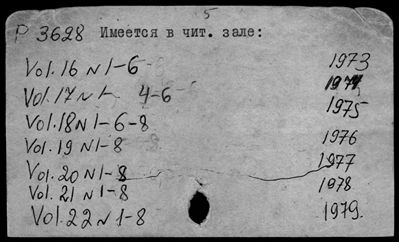 5
P 3628 Имеется в чит. зале:
Vol.16 N 1-6 1973
Vol.17 N 1- 4-6 1974
Vol.18 N 1-6-8 1975
Vol.19 N 1-8 1976
Vol.20 N 1-8 1977
Vol.21 N 1-8 1978
Vol.22 N 1-8 1979.